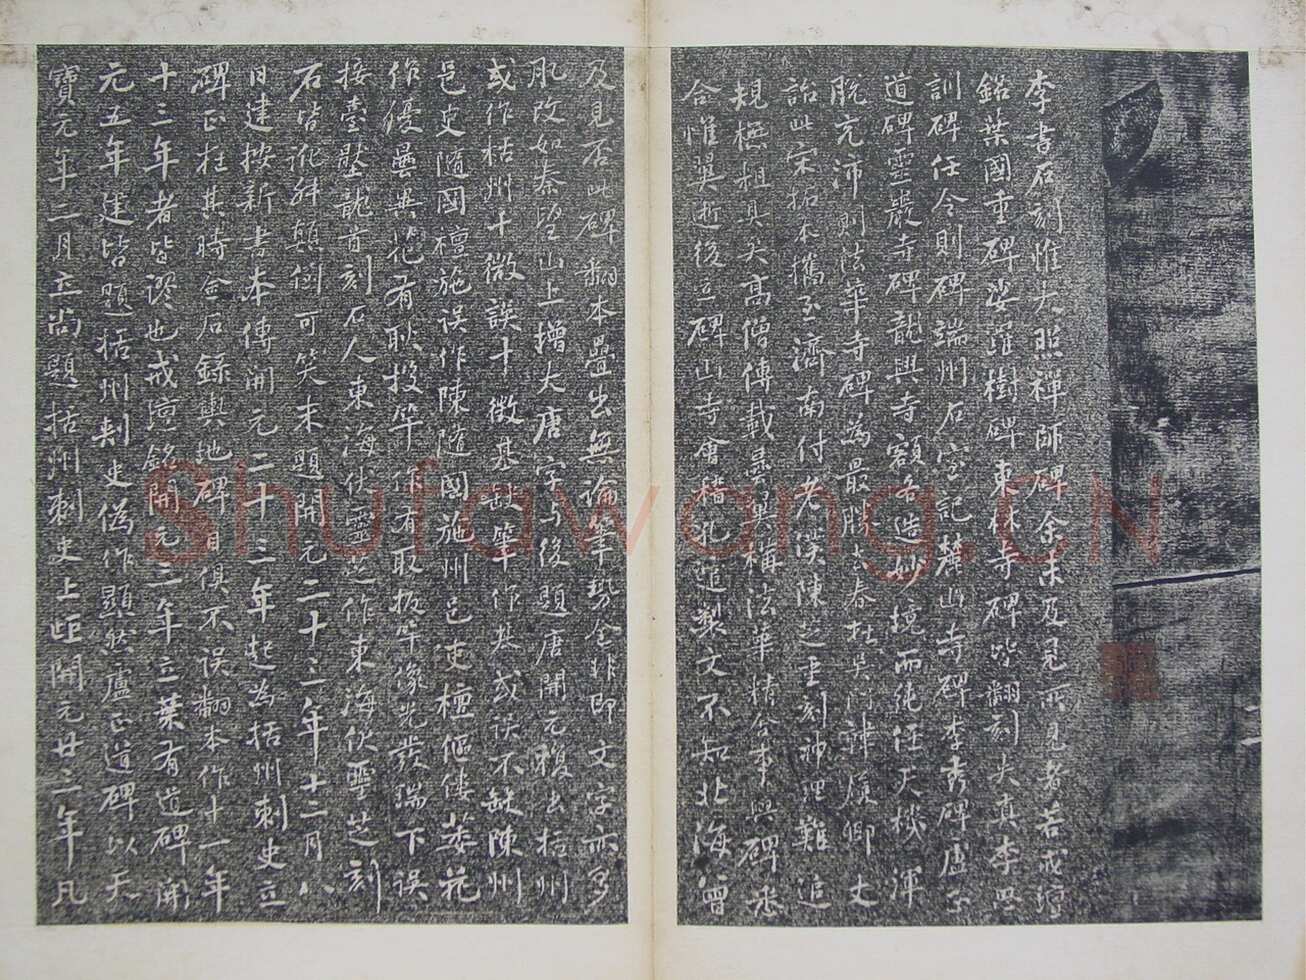 李書石刻惟大照禪師碑余未及見所見者若戒壇
銘葉國重碑娑羅樹碑東林寺碑皆翻刻失真李思
訓碑任令則碑端州石室記麓山寺碑李秀碑盧正
道碑靈巖寺碑龍興寺額各造妙境而純任天機渾
脫充沛則法華寺碑為最勝去春於吳門韓履卿丈
詒此宋拓本攜至濟南付老漢陳芝刻神理難追
規橅粗具矣高僧傳載曇翼構法華精舍事與碑悉
合惟翼逝後立碑山寺會稽孔逭製文不知北海曾
及見否此碑翻本疊出無論筆勢全非即文字亦多
肊改如秦望山上增大唐字與後題唐開元複出括州
或作枯州十徵誤十徵基缺筆作其或誤不缺陳州
邑吏隨國檀施誤作陳隨國施州邑吏檀傴僂萎花
作優曇異花有耿投筆作有取扳筆像光發瑞下誤
接臺壓龍首刻石人東海伏靈芝作東海伏靈芝刻
石皆訛舛顛倒可笑末題開元二十三年十二月八
日建按新書本傳開元二十三年起為括州刺史立
碑正在其時金石錄輿地碑目俱不誤翻本作十一年
十三年者皆謬也戒壇銘開元三年立葉有道碑開
元五年建皆題括州刺史偽作顯然盧正道碑以天
寶元年二月立尚題括州刺史上距開元廿三年凡
Shufawang.CN